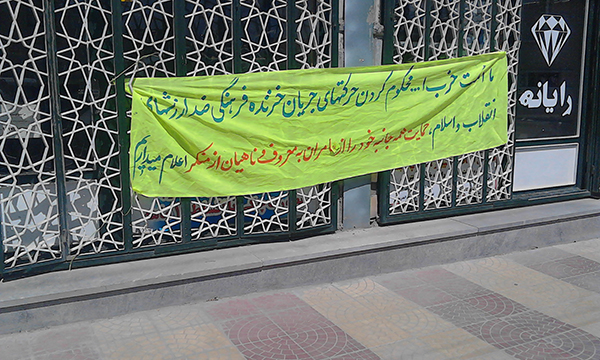 ما امت حزب ا... محکوم کردن حرکتهای جریان خزنده فرهنگی ضد ارزشهای
انقلاب و اسلام، حمایت همه جانبه خود را از آمران به معروف و ناهیان از منکر اعلام میداریم
رایانه